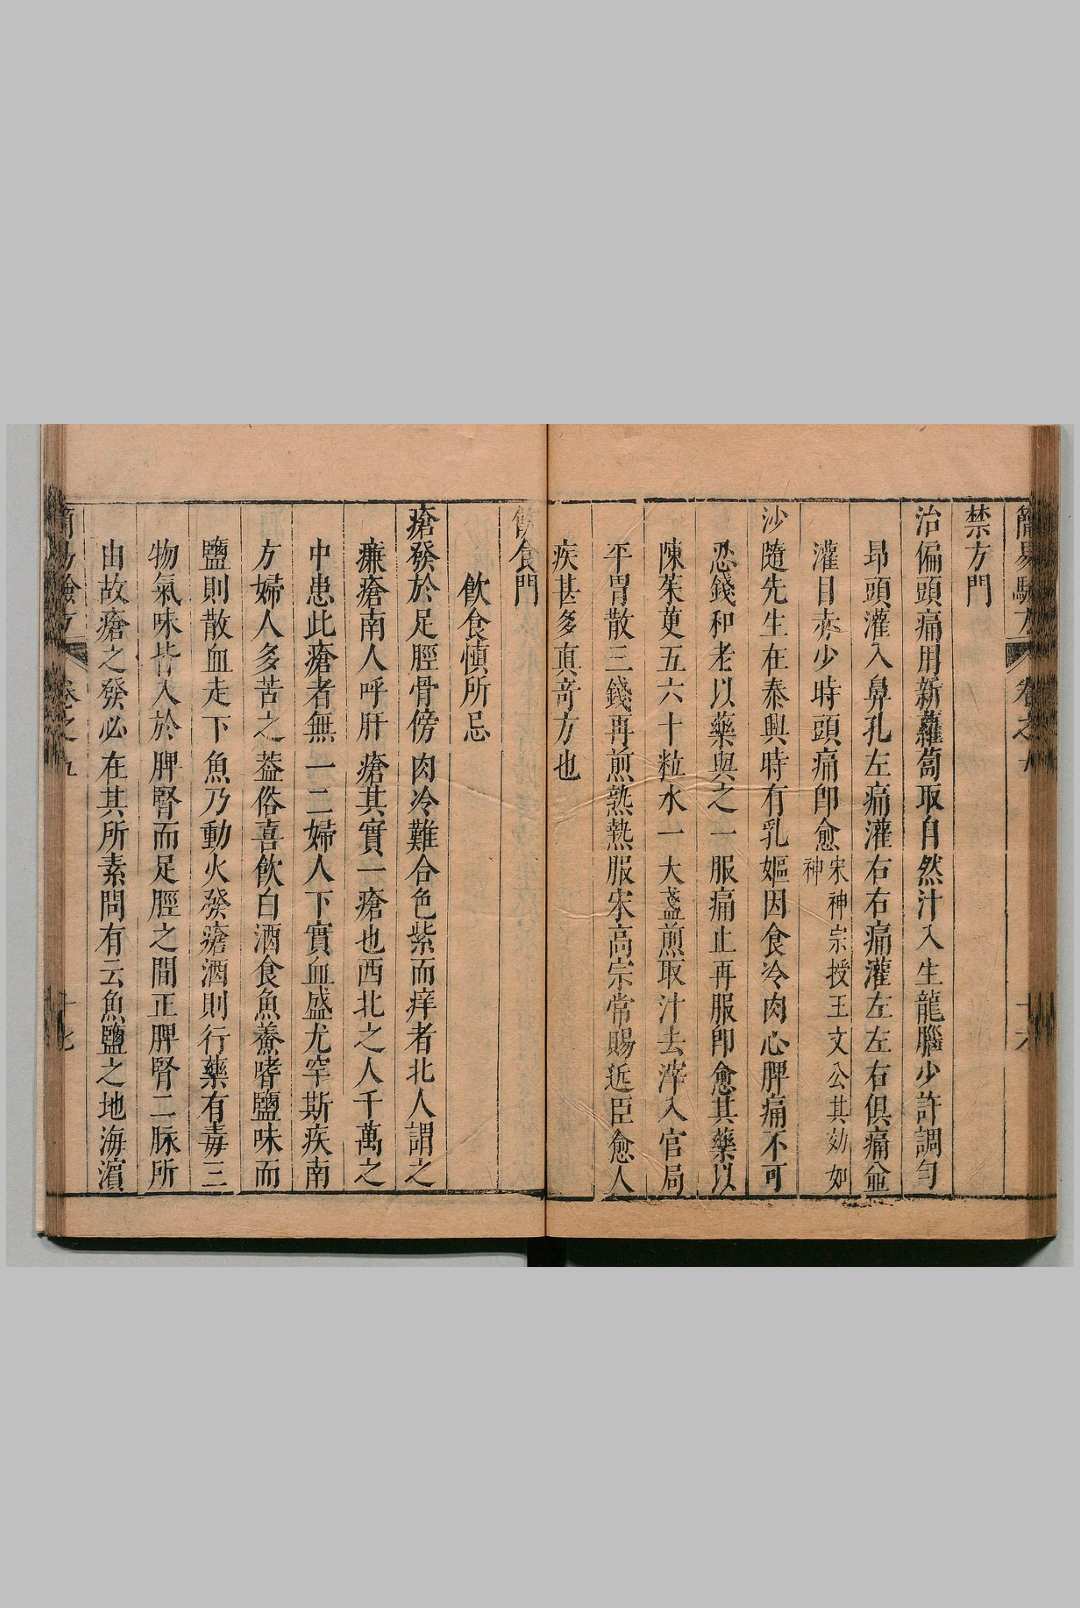 簡易驗方 卷之 十六
禁方門
治偏頭痛用新蘿蔔取自然汁入生龍腦少許調勻
昂頭灌入鼻孔左痛灌右右痛灌左左右俱痛並
灌目赤少時頭痛即愈宋神宗授王文公其効如神
沙隨先生在泰興時有乳嫗因食冷肉心脾痛不可
忍錢和老以藥與之一服痛止再服即愈其藥以
陳茱萸五六十粒水一大盞煎取汁去滓入官局
平胃散三錢再煎熟熱服宋高宗常賜近臣愈人
疾甚多真奇方也
飲食門
飲食慎所忌
瘡發於足脛骨傍肉冷難合色紫而痒者北人謂之
臁瘡南人呼肝瘡其實一瘡也西北之人千萬之
中患此瘡者無一二婦人下實血盛尤罕斯疾南
方婦人多苦之葢俗喜飲白酒食魚鯗嗜鹽味而
鹽則散血走下魚乃動火發瘡酒則行藥有毒三
物氣味皆入於脾腎而足脛之間正脾腎二脉所
由故瘡之發必在其所素問有云魚鹽之地海濱
簡易驗方 卷之五 十七